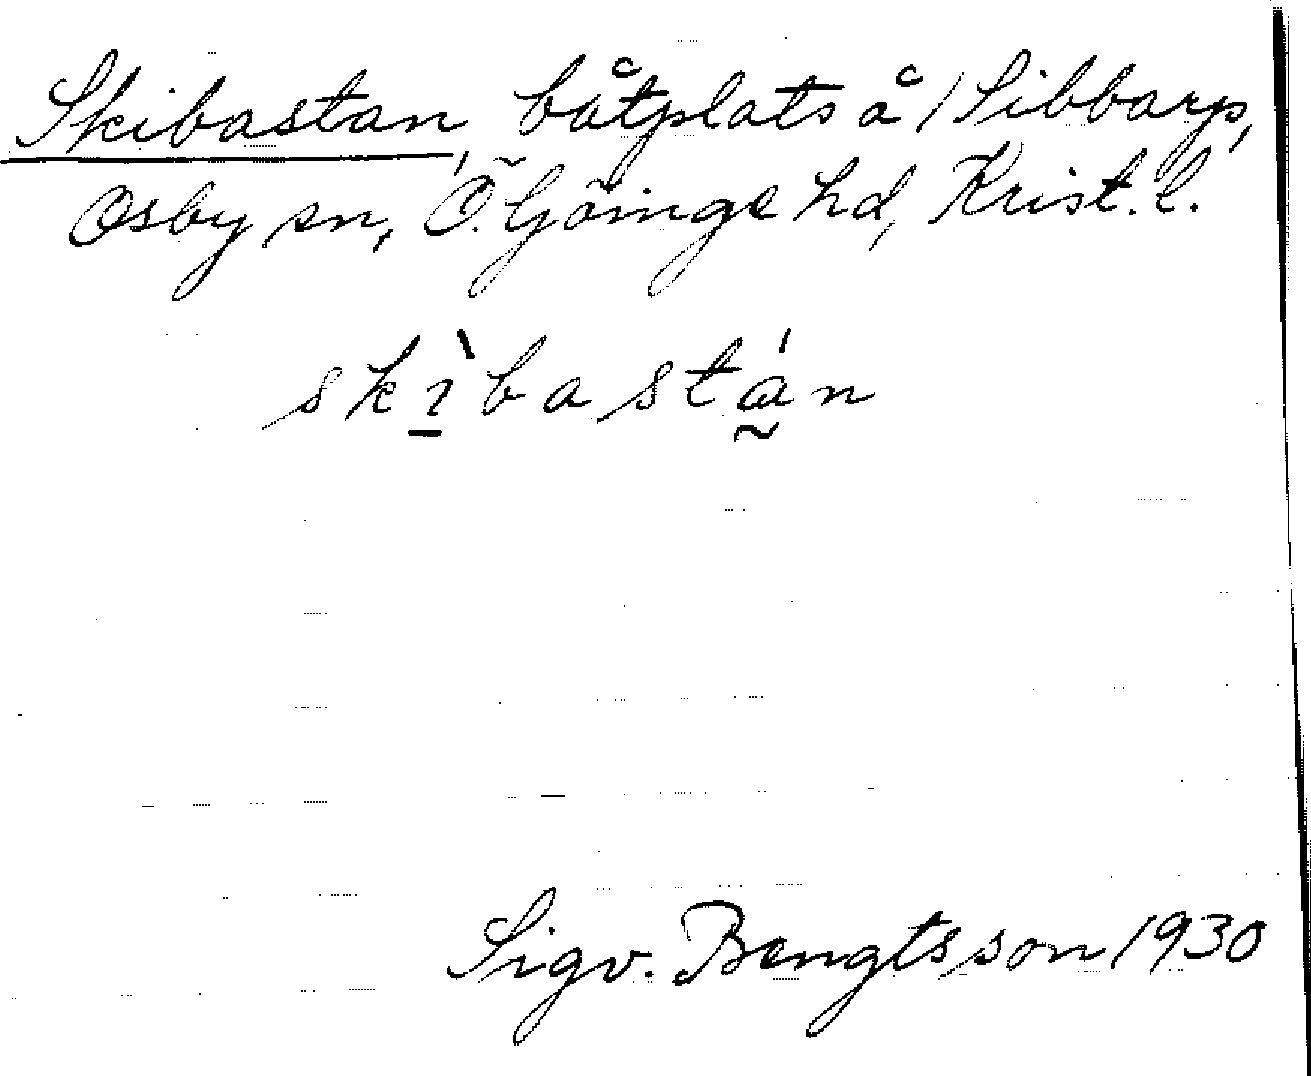 Skibastan, båtplats å Sibbarp,
Osby sn, Ö. Göinge hd, Krist. l.
skìbastán
Sigv. Bengtsson 1930